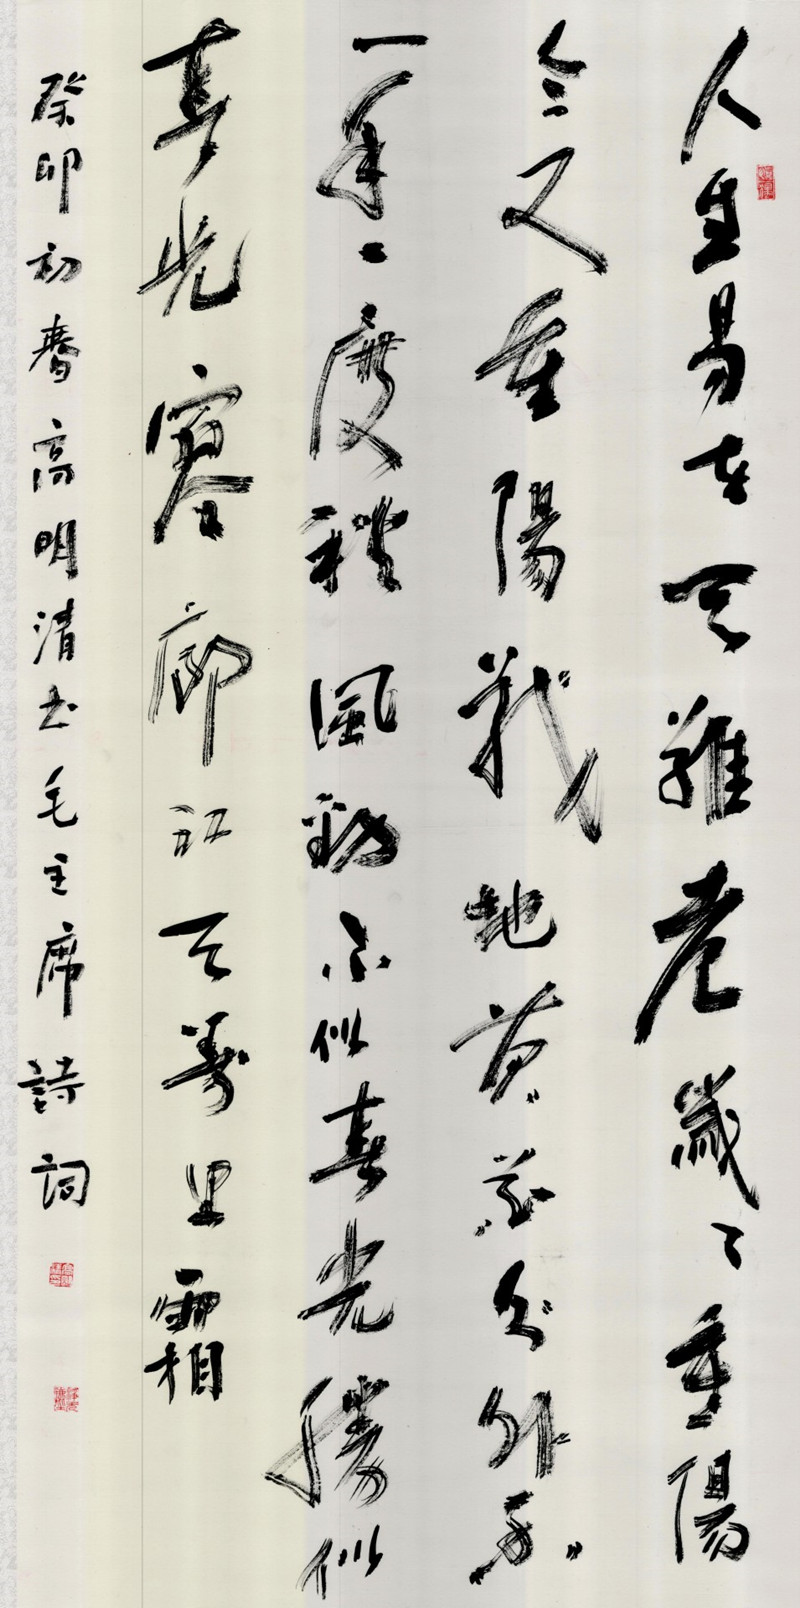 人生易老天難老歲々重陽
今又重陽戰地黃花分外香
一年一度秋風勁不似春光勝似
春光寥廓江天萬里霜
癸卯初春高明清书毛主席詩詞